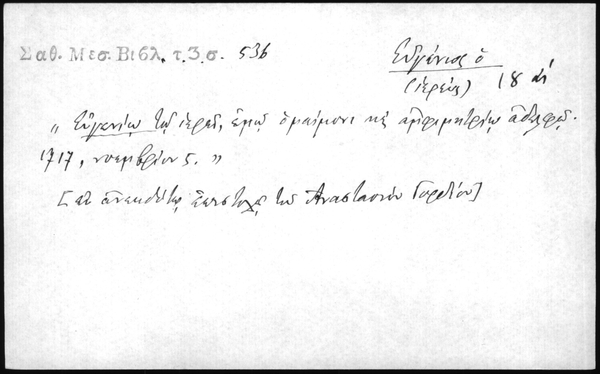 Σαθ. Μεσ. Βιβλ. τ. 3. σ. 536
Εὐγένιος ὁ
(ἱερεύς) 18 αἰ
„ Εὐγενίῳ τῷ ἱερεῖ, ἐμῷ ὁμαίμονι κὲ ἀμφιμητρίῳ ἀδελφῷ.
1717, νοεμβρίου 5. "
[ ἐξ ἀνεκδότης ἐπιστολῆς τοῦ Ἀναστασίου Γορδίου ]